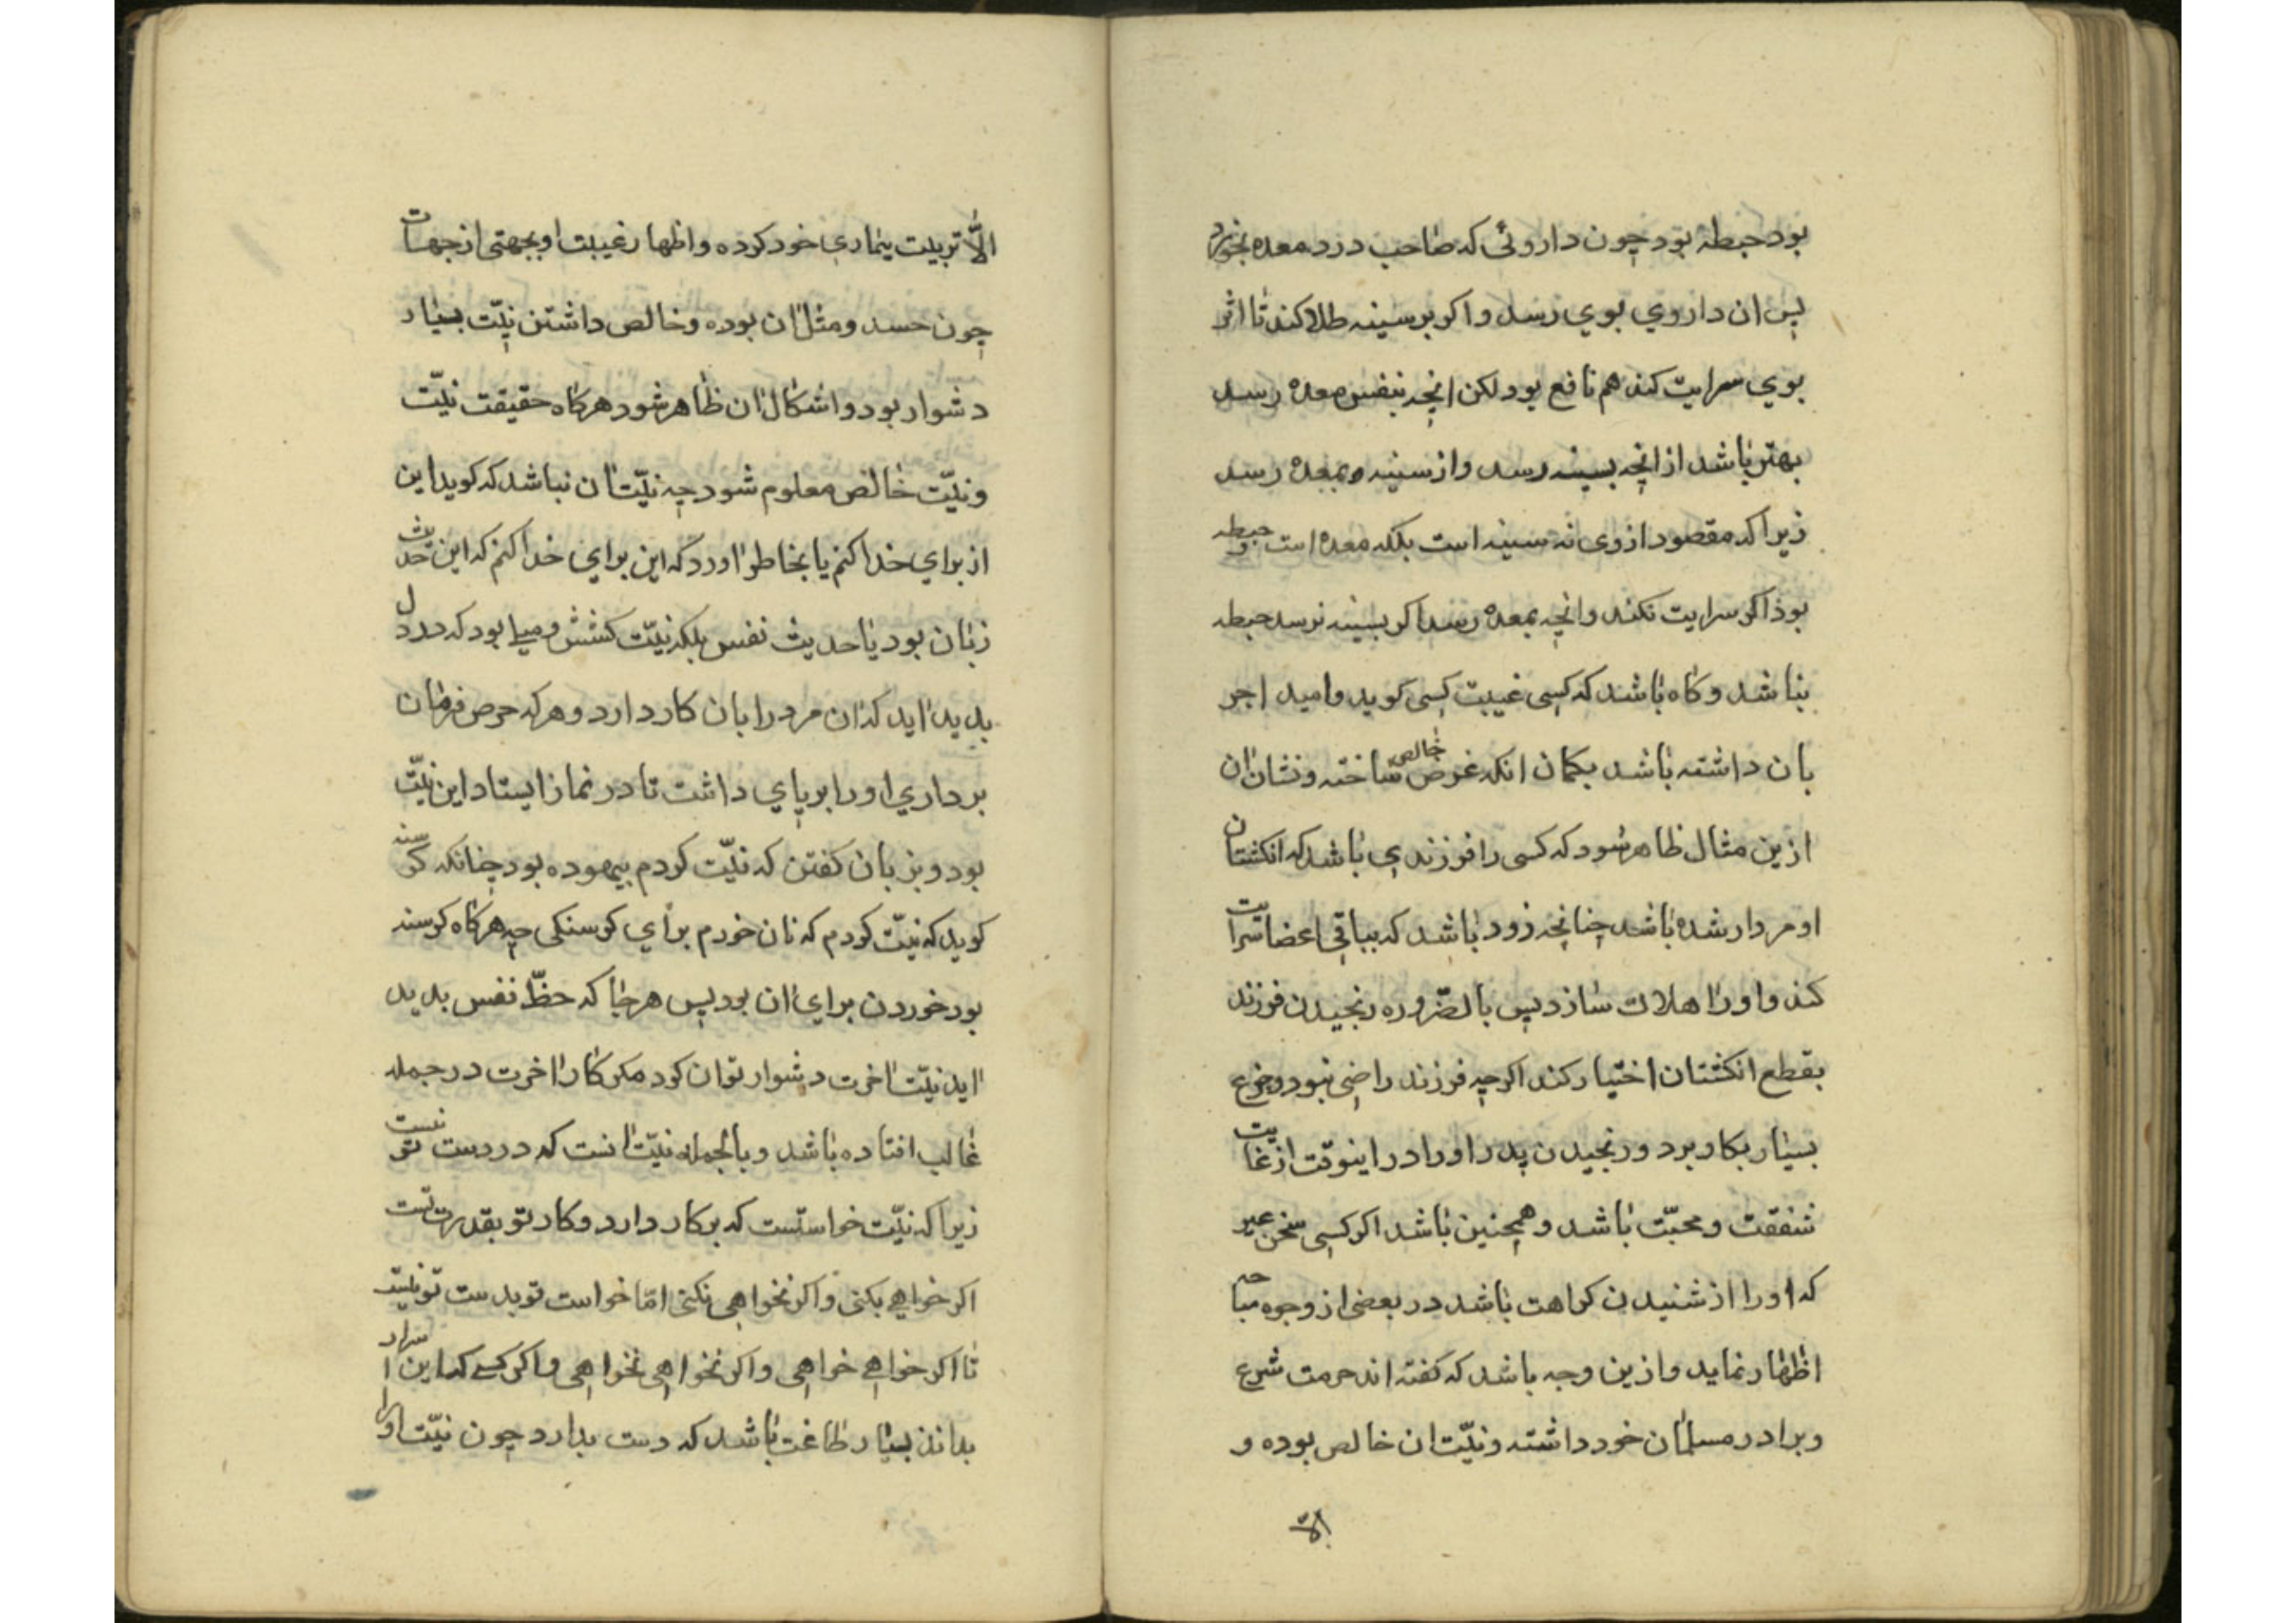 بود حبطهٔ بود چون داروئی که صاحب درد معده بخورد
پس ان داروي بوي رسد و اکر بر سینه طلا کند تا اثر
بوي سرایت کند هم نافع بود لکن انچه بنفس معده رسد
بهتر باشد از انچه بسینه رسد و از سینه بمعده رسد
زیرا که مقصود ازوی نه سینه است بلکه معده است حبطه و
بود اکر سرایت نکند و انچه بمعده رسد اکر بسینه نرسد حبطه
نباشد و کاه باشد که کسی غیبت کسی کوید و امید اجر
بان داشته باشد بکمان انکه غرض خالص ساخته و نشان ان
ازین مثال ظاهر شود که کسی را فرزندي باشد که انکشتان
او مردار شده باشد چنانچه زود باشد که بباقی اعضا سرایت
کند و او را هلاک سازد پس بالضّروره رنجیدن فرزند
بقطع انکشتان اختیار کند اکر چه فرزند راضی نبود و جزع
بسیار بکار برد و رنجیدن پدر او را در اینوقت از غایت
شفقت و محبّت باشد و همچنین باشد اکر کسی سخن غیر
که او را از شنیدن کراهت باشد در بعضی از وجوه مباحه
اظهار نماید و ازین وجه باشد که کفته اند حرمت شرع
و برادر مسلمان خود داشته و نیّت ان خالص بوده و
الاّ
الاّ تربیت بیماري خود کرده و اظهار غیبت او بجهتی از جهات
چون حسد و مثل ان بوده و خالص داشتن نیّت بسیار
دشوار بود و اشکال ان ظاهر شود هرکاه حقیقت نیّت
و نیّت خالص معلوم شود چه نیّت ان نباشد که کوید این
از براي خدا کنم یا بخاطر اورد که این براي خدا کنم که این حدیث
زبان بود یا حدیث نفس بلکه نیّت کشش و میلی بود که در دل
پدید اید که ان مرد را بان کار دارد و هرکه حرص فرمان
برداري او را بر پاي داشت تا در نماز ایستاد این نیّت
بود و بزبان کفتن که نیّت کردم بیهوده بود چنانکه کرسنه
کوید که نیّت کردم که نان خورم براي کرسنکی چه هرکاه کرسنه
بود خوردن براي ان بود پس هر جا که حظّ نفس پدید
اید نیّت اخرت دشوار توان کرد مکر کار اخرت در جمله
غالب افتاده باشد و بالجمله نیّت انست که در دست تو نیست
زیرا که نیّت خواستست که بر کار دارد و کار تو بقدرت تست
اکر خواهی بکنی و اکر نخواهی نکنی امّا خواست تو بدست تو نیست
تا اکر خواهی خواهی و اکر نخواهی نخواهی و اکر کسی که این اسرار
بداند بسیار طاعت باشد که دست بدارد چون نیّت او را